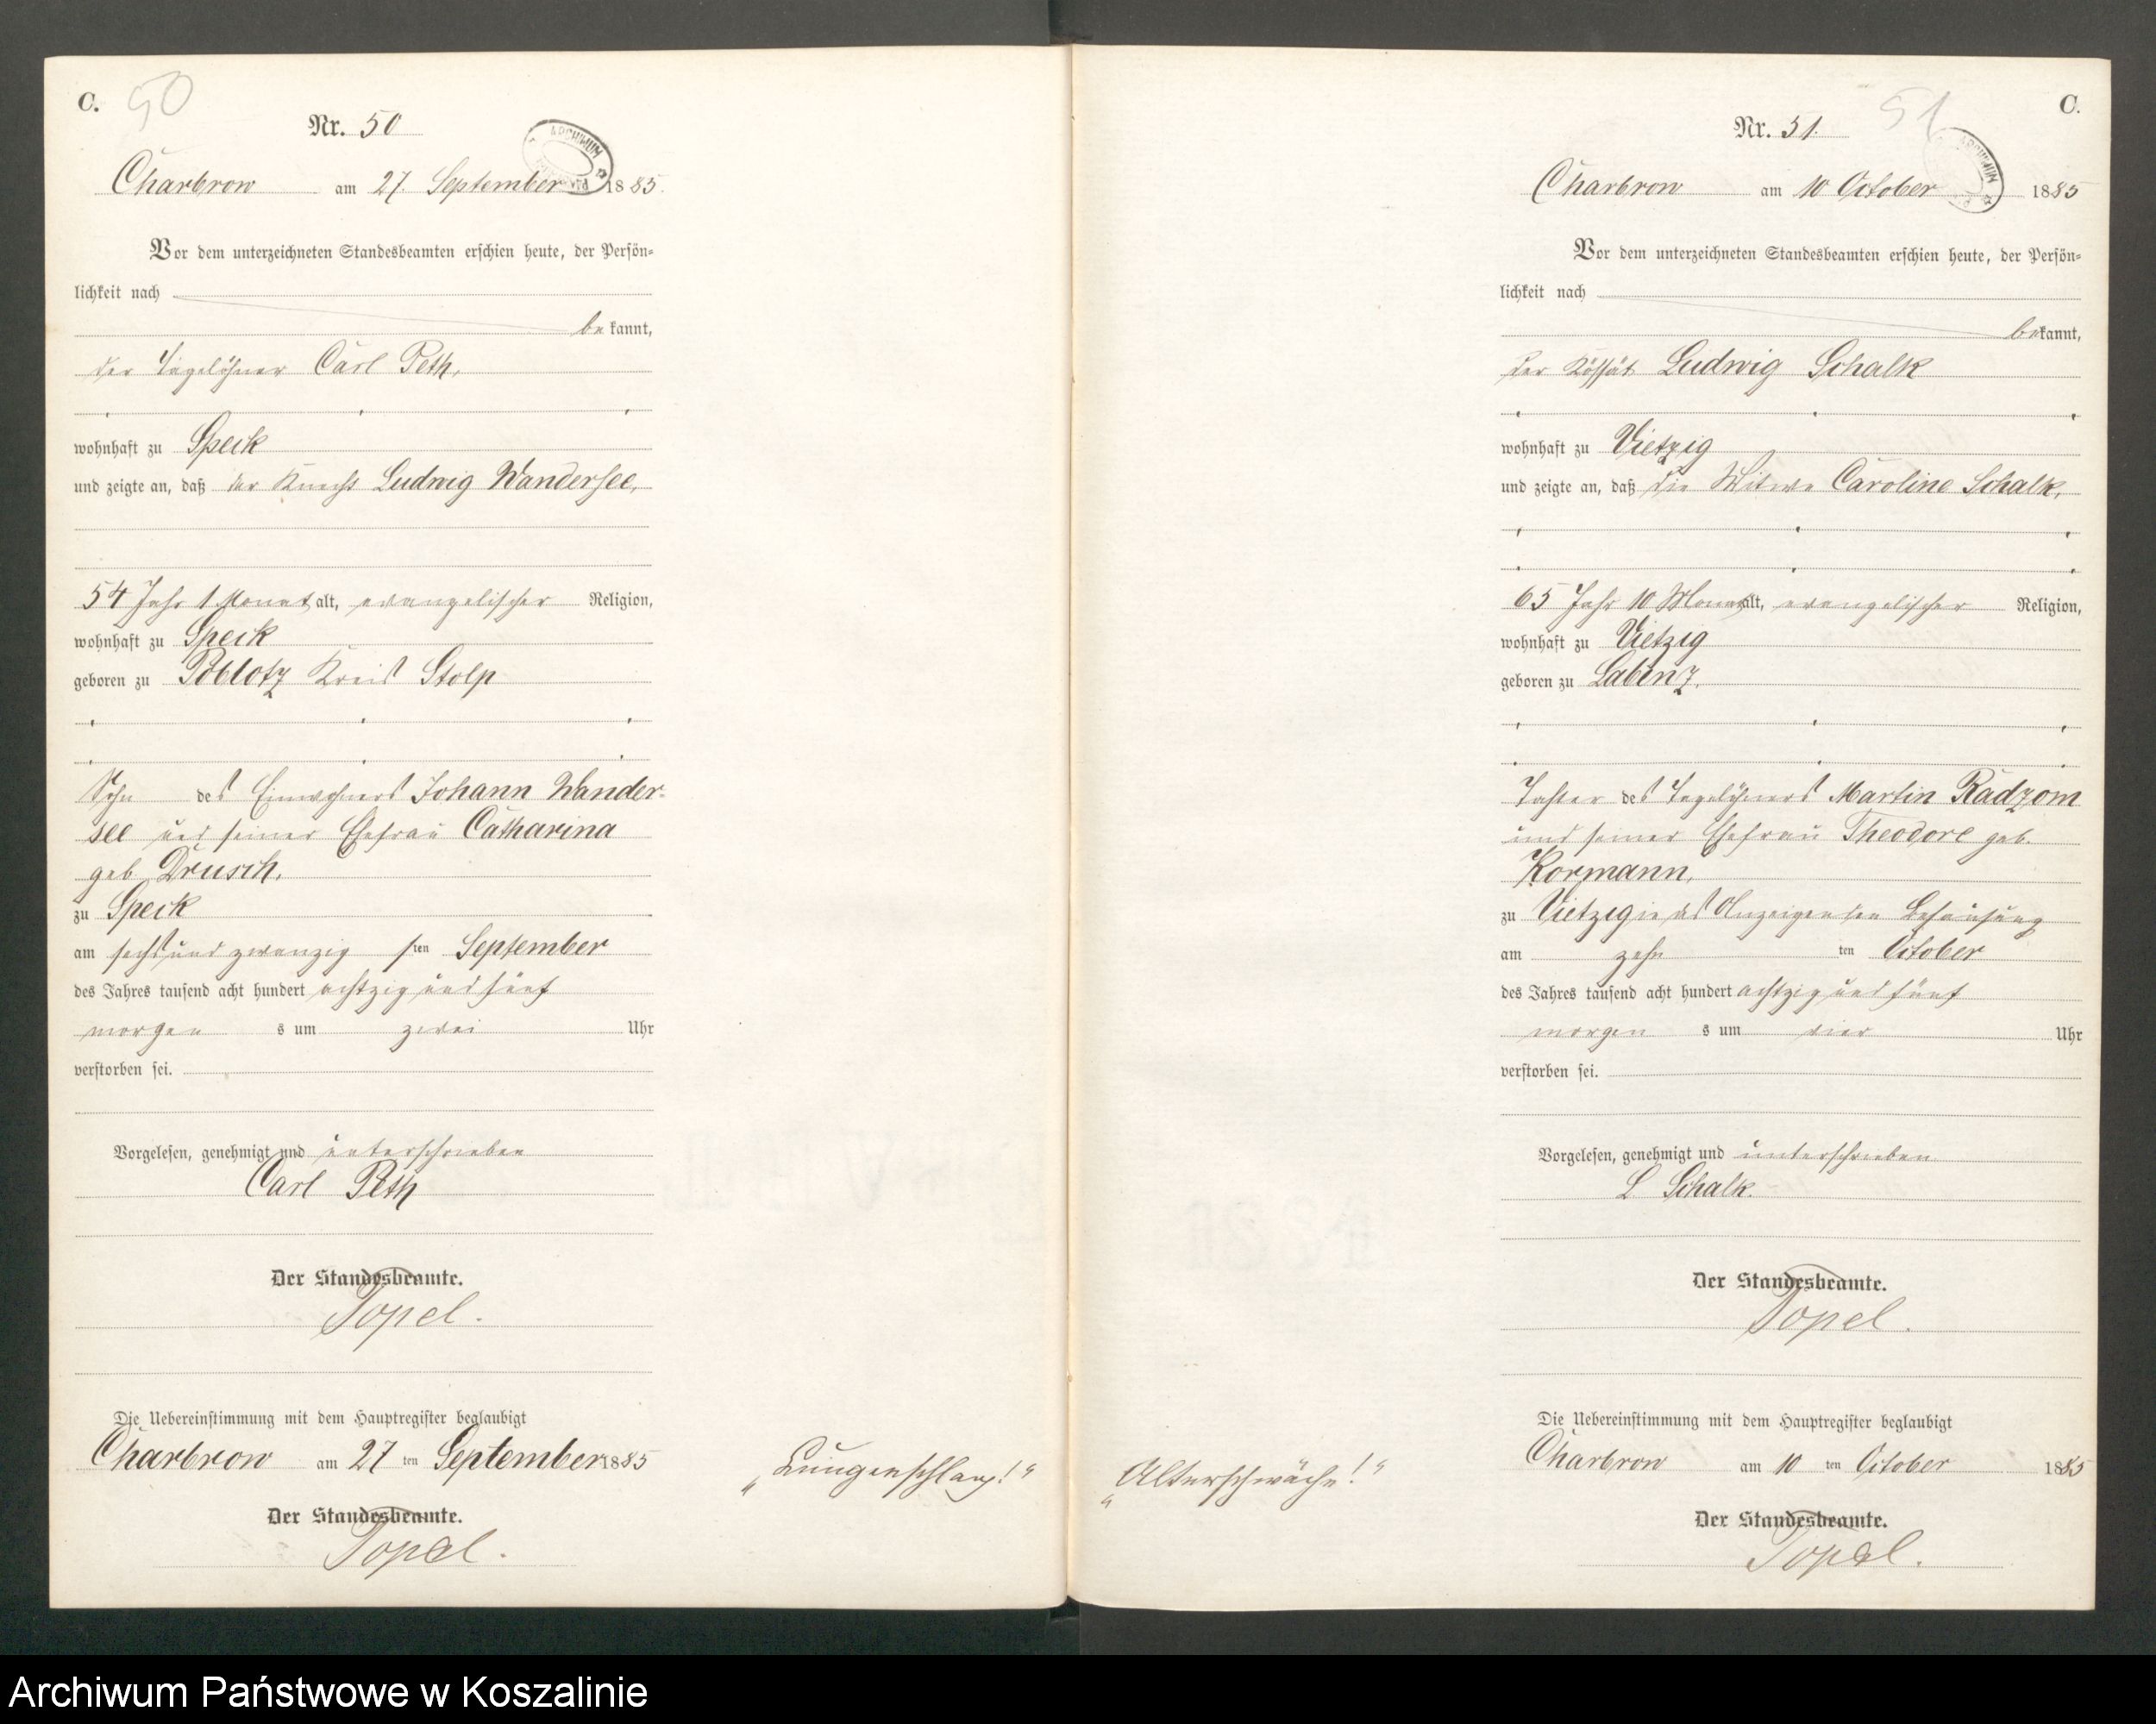 C. 50
Nr. 50
ARCHIWUM
Charbrow am 27. September 1885.
Vor dem unterzeichneten Standesbeamten erschien heute, der Persön-
lichkeit nach
bekannt,
der Tagelöhner Carl Peth,
wohnhaft zu Speck
und zeigte an, daß der Knecht Ludwig Wandersee,
54 Jahr 1 Monat alt, evangelischer Religion,
wohnhaft zu Speck
geboren zu Poblotz Kreis Stolp
Sohn des Einwohners Johann Wander-
see und seiner Ehefrau Catharina
geb. Drusch,
zu Speck
am sechsundzwanzigsten September
des Jahres tausend acht hundert achtzig und fünf
morgens um zwei Uhr
verstorben sei.
Vorgelesen, genehmigt und unterschrieben
Carl Peth
Der Standesbeamte.
Topel.
Die Uebereinstimmung mit dem Hauptregister beglaubigt
Charbrow am 27ten September 1885
Der Standesbeamte.
Topel.
„Lungenschlag!“
51 C.
Nr. 51.
Charbrow am 10 October 1885
Vor dem unterzeichneten Standesbeamten erschien heute, der Persön-
lichkeit nach
bekannt,
der Kossät Ludwig Schalk
wohnhaft zu Vietzig
und zeigte an, daß die Witwe Caroline Schalk,
65 Jahr 10 Monat alt, evangelischer Religion,
wohnhaft zu Vietzig
geboren zu Labenz,
Tochter des Tagelöhners Martin Radzom
und seiner Ehefrau Theodore geb.
Kormann,
zu Vietzig in des Anzeigenden Behausung
am zehnten October
des Jahres tausend acht hundert achtzig und fünf
morgens um vier Uhr
verstorben sei.
Vorgelesen, genehmigt und unterschrieben
L Schalk.
Der Standesbeamte.
Topel.
Die Uebereinstimmung mit dem Hauptregister beglaubigt
Charbrow am 10ten October 1885
Der Standesbeamte.
Topel.
„Alterschwäche!“
Archiwum Państwowe w Koszalinie